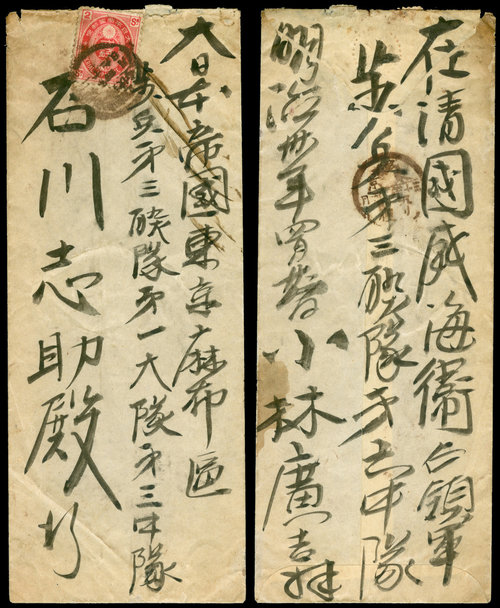 大日本帝國東京麻布區
歩兵第三聯隊第一大隊第三中隊
石川志助殿
在清國威海衞占領軍
歩兵第三聯隊第六中隊
明治卅年四月
小林廣吉拝